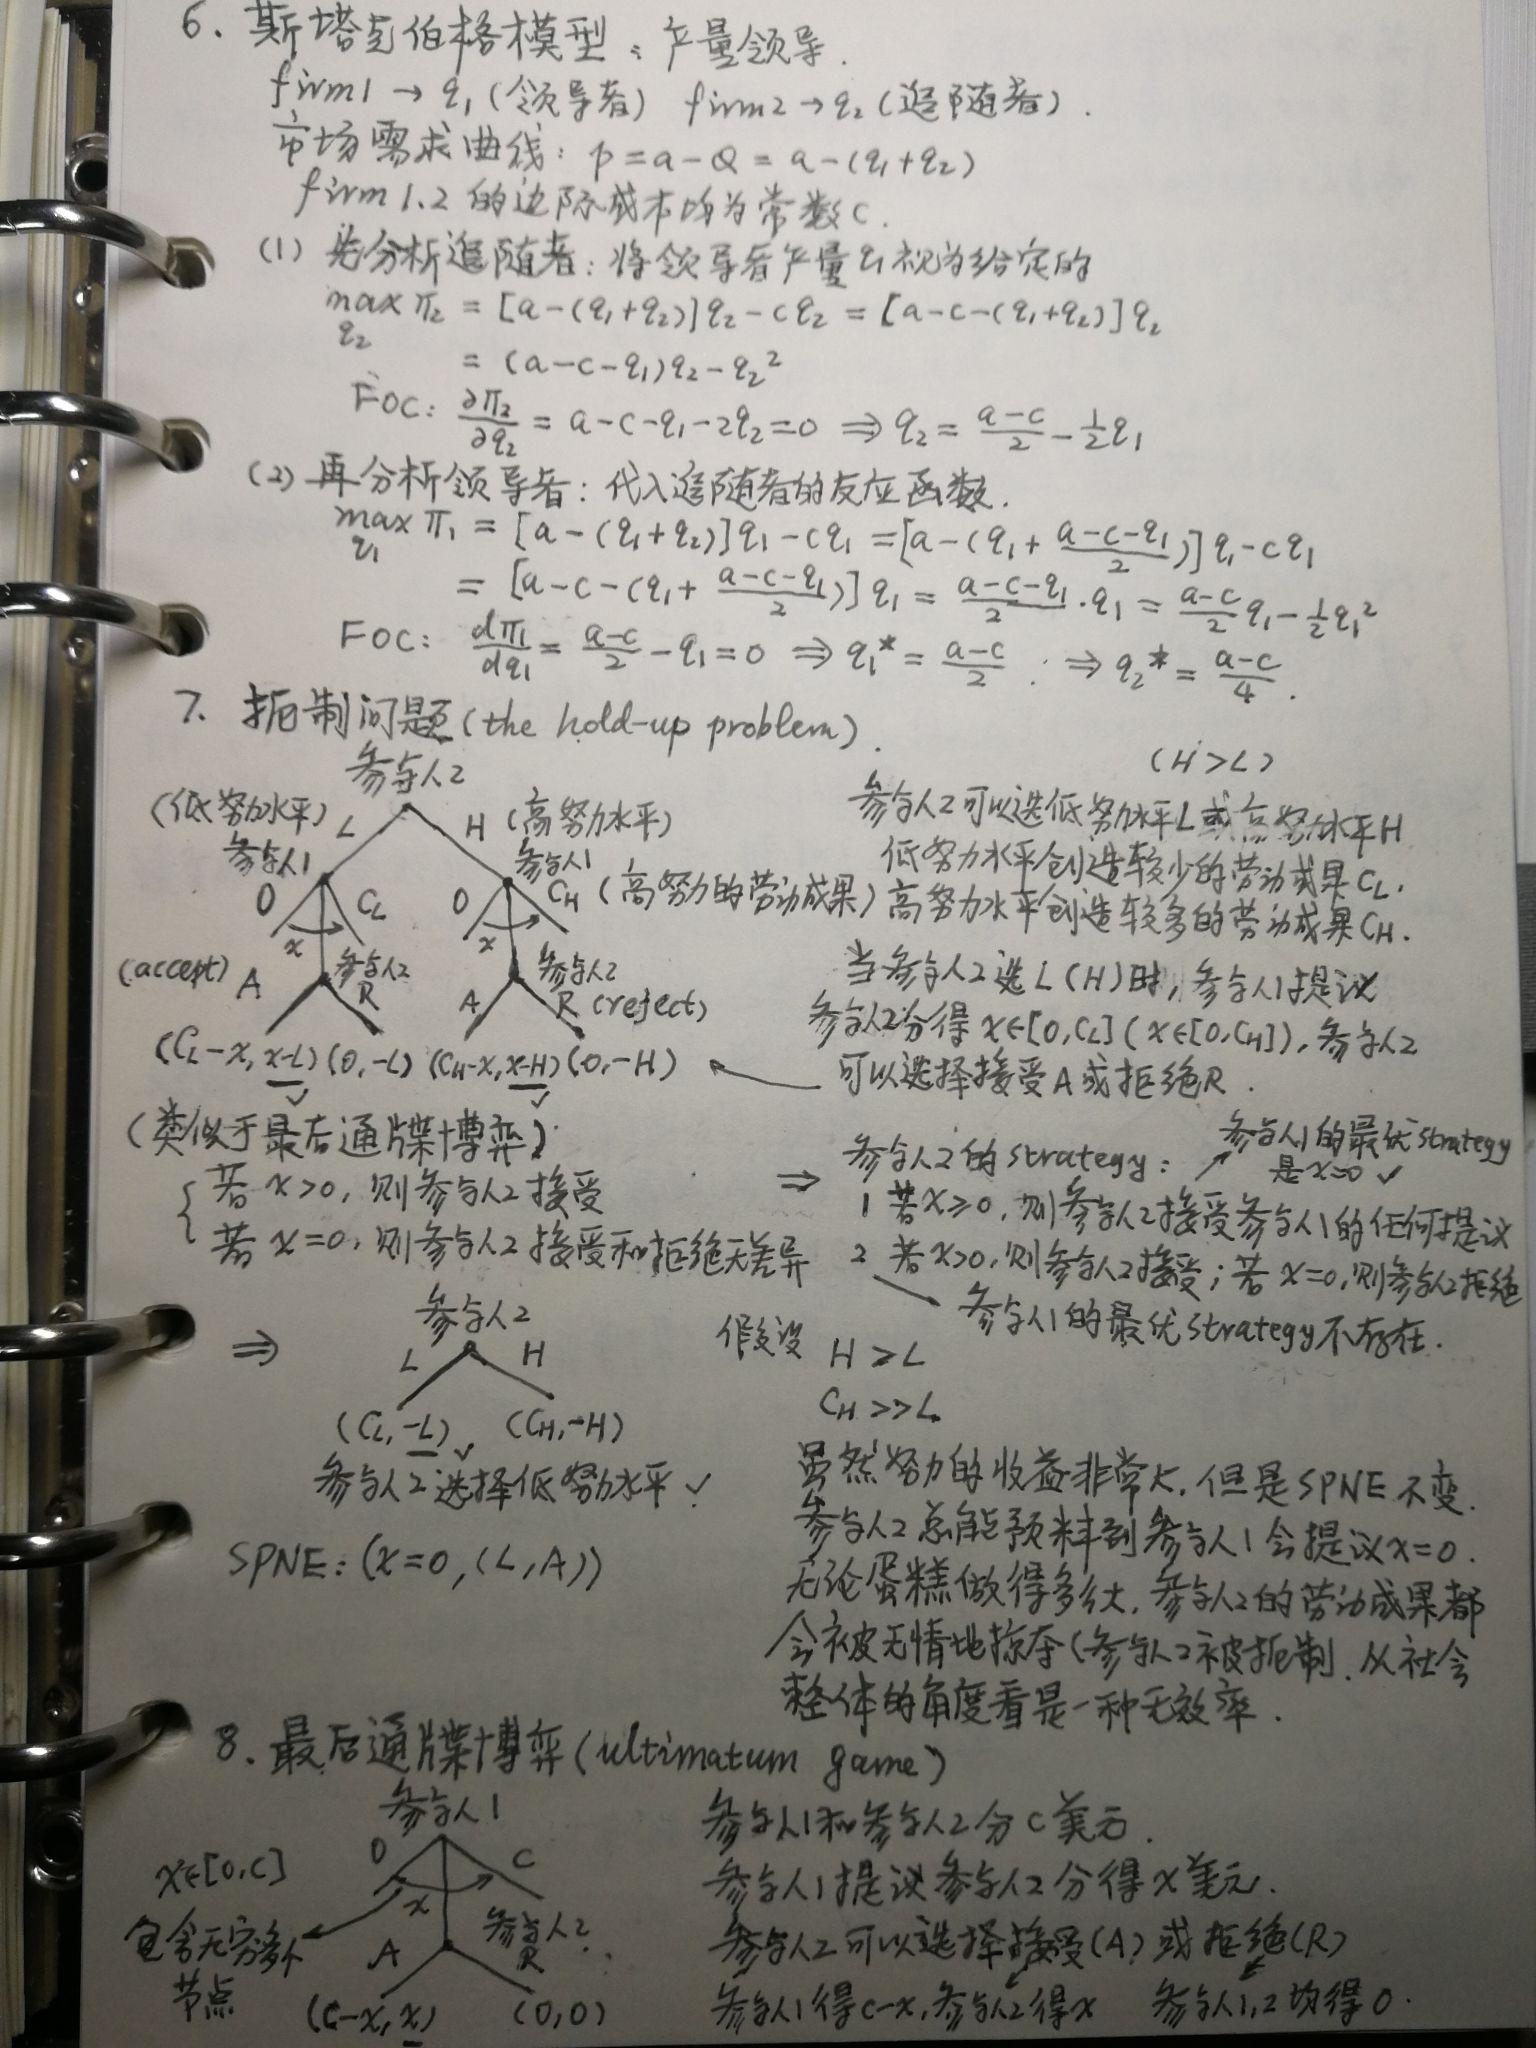 6、斯塔克伯格模型：产量领导.
firm1 → q₁ (领导者) firm2 → q₂ (追随者).
市场需求曲线：p = a-Q = a-(q₁+q₂)
firm 1、2 的边际成本均为常数C.
(1) 先分析追随者：将领导者产量q₁视为给定的
max π₂ = [a-(q₁+q₂)]q₂-cq₂ = [a-c-(q₁+q₂)]q₂
q₂
= (a-c-q₁)q₂-q₂²
FOC: ∂π₂/∂q₂ = a-c-q₁-2q₂=0 ⇒ q₂ = (a-c)/2 - ½q₁
(2) 再分析领导者：代入追随者的反应函数.
max π₁ = [a-(q₁+q₂)]q₁-cq₁ = [a-(q₁+(a-c-q₁)/2)]q₁-cq₁
q₁
= [a-c-(q₁+(a-c-q₁)/2)]q₁ = (a-c-q₁)/2·q₁ = (a-c)/2 q₁-½q₁²
FOC: dπ₁/dq₁ = (a-c)/2 - q₁=0 ⇒ q₁* = (a-c)/2 . ⇒ q₂* = (a-c)/4 .
7、扼制问题 (the hold-up problem).
参与人2
(低努力水平) L H (高努力水平)
参与人1 参与人1
0 x C_L 0 x C_H (高努力的劳动成果)
参与人2 参与人2
(accept) A R A R (reject)
(C_L-x, x-L) (0,-L) (C_H-x, x-H) (0,-H)
(H>L)
参与人2可以选低努力水平L或高努力水平H
低努力水平创造较少的劳动成果C_L.
高努力水平创造较多的劳动成果C_H.
当参与人2选L(H)时，参与人1提议
参与人2分得x∈[0,C_L](x∈[0,C_H]), 参与人2
可以选择接受A或拒绝R.
(类似于最后通牒博弈)
{ 若 x>0, 则参与人2接受
若 x=0, 则参与人2接受和拒绝无差异
⇒ 参与人2的strategy:
参与人1的最优strategy
是x=0 ✓
1 若x≥0, 则参与人2接受参与人1的任何提议
2 若x>0, 则参与人2接受；若x=0, 则参与人2拒绝
参与人1的最优strategy不存在.
⇒ 参与人2
L H
(C_L, -L) ✓ (C_H, -H)
参与人2选择低努力水平 ✓
SPNE: (x=0, (L,A))
假设 H>L
C_H>>L
虽然努力的收益非常大, 但是SPNE不变.
参与人2总能预料到参与人1会提议x=0.
无论蛋糕做得多大, 参与人2的劳动成果都
会被无情地掠夺(参与人2被扼制、从社会
整体的角度看是一种无效率.
8、最后通牒博弈 (ultimatum game)
参与人1
0 C
x∈[0,C] x
包含无穷多个
节点
参与人2
A R
(C-x, x) (0,0)
参与人1和参与人2分C美元.
参与人1提议参与人2分得x美元.
参与人2可以选择接受(A)或拒绝(R)
参与人1得c-x, 参与人2得x 参与人1,2均得0.